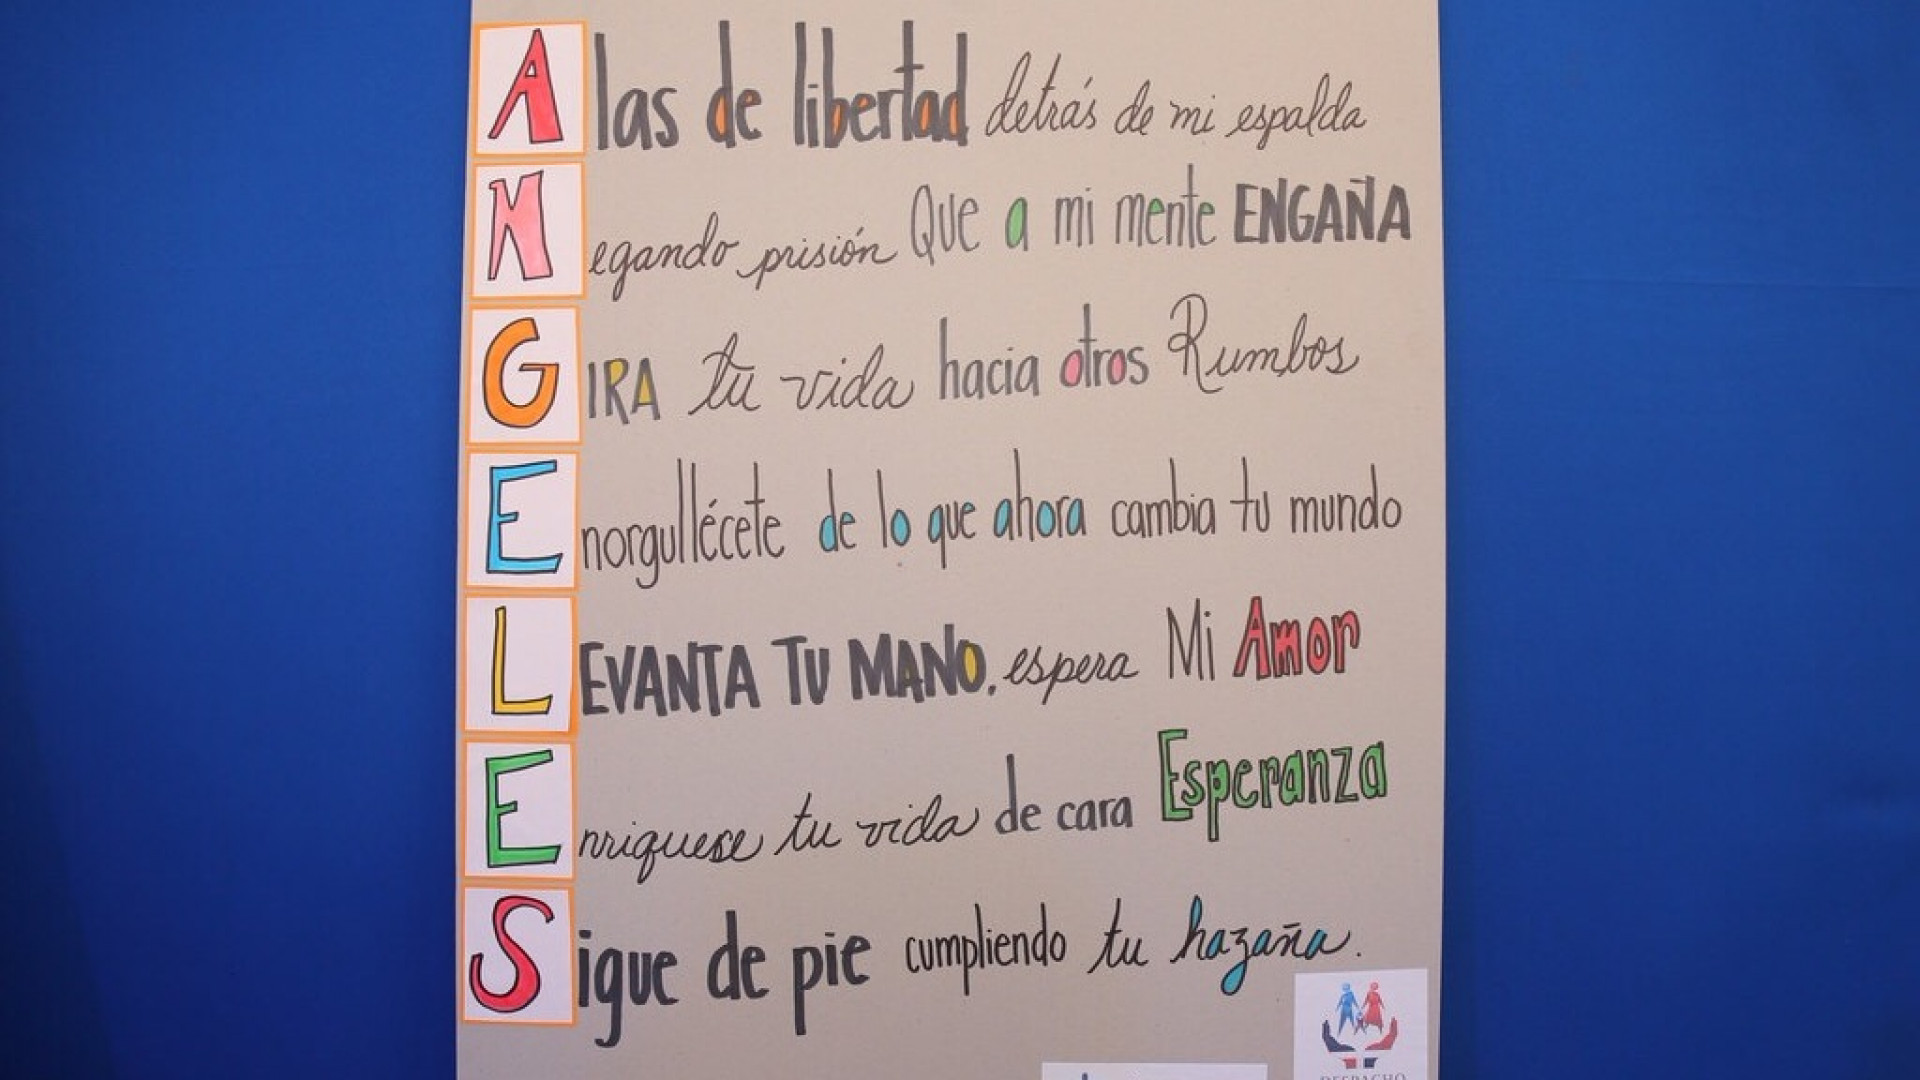 Alas de libertad detrás de mi espalda
Negando prisión Que a mi mente ENGAÑA
GIRA tu vida hacia otros Rumbos
Enorgullécete de lo que ahora cambia tu mundo
LEVANTA TU MANO, espera Mi Amor
Enriquese tu vida de cara Esperanza
Sigue de pie cumpliendo tu hazaña.
DESPACHO